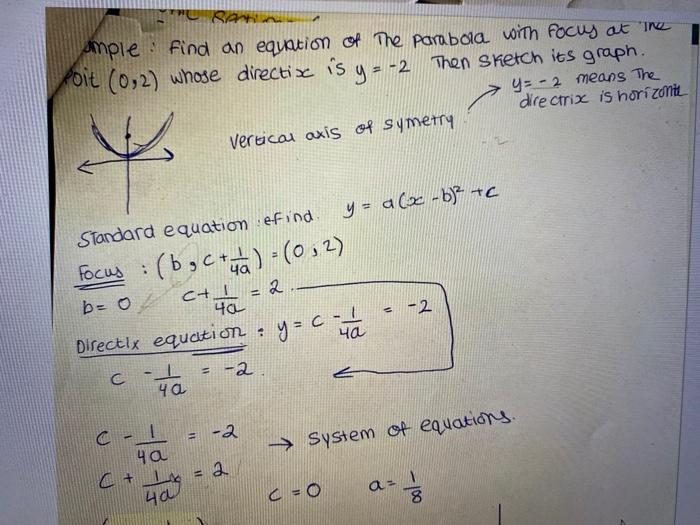 mple : Find an equation of The Parabola with Focus at The
Poit (0,2) whose directix is y = -2 Then sketch its graph.
→ y= -2 means The
directrix is horizontal
vertical axis of symetry
Standard equation : efind y = a(x - b)² + c
Focus : (b, c + 1/4a) = (0, 2)
b = 0 c + 1/4a = 2
Directix equation : y = c - 1/4a = -2
c - 1/4a = -2
c - 1/4a = -2 → System of equations.
c + 1/4a = 2
c = 0 a = 1/8